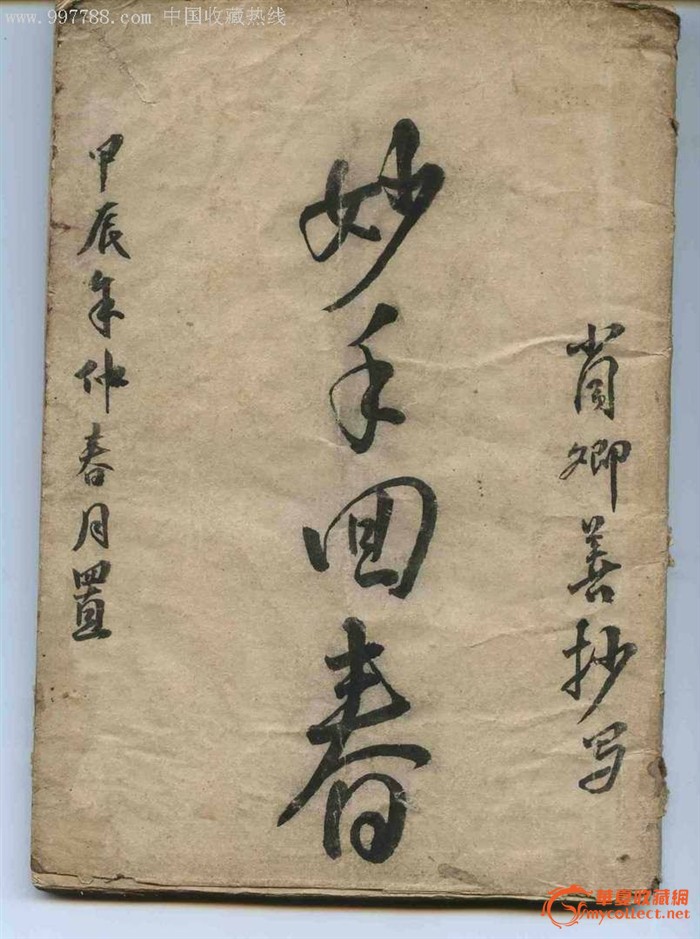 www.997788.com 中国收藏热线
肖卿善抄写
妙手回春
甲辰年仲春月置
華夏收藏網
mycollect.net